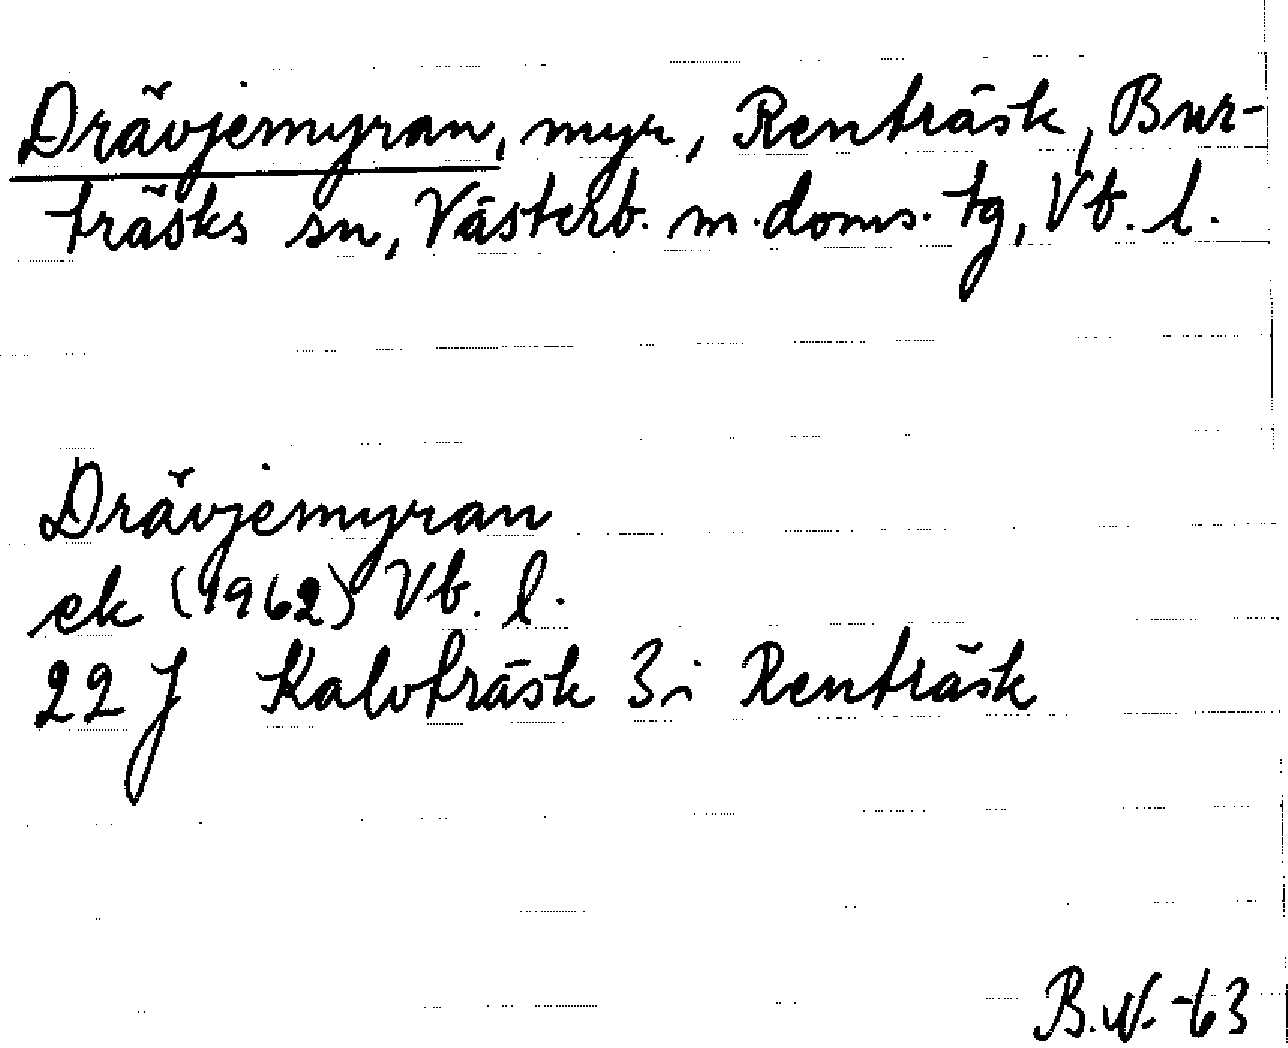 Drävjemyran, myr, Renträsk, Bur-
träsks sn, Västerb. m. doms. tg, Vb. l.
Drävjemyran
ek (1962) Vb. l.
22 J Kalvträsk 3 i Renträsk
B.N. -63